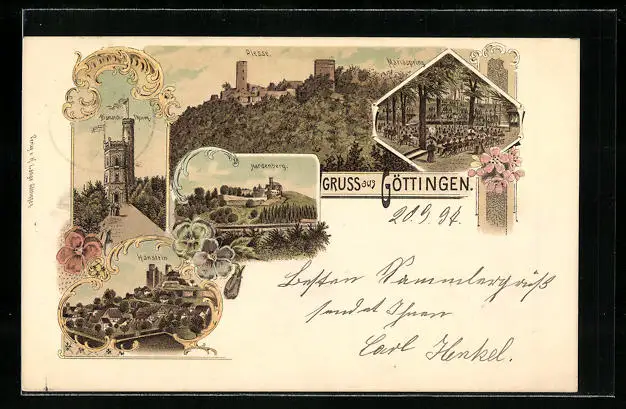 Plesse.
Mariaspring
Bismarck-
thurm.
Hardenberg.
GRUSS aus GÖTTINGEN.
20.9.94.
Hanstein
Besten Sammlergruß
sendet Ihnen
Carl Henkel.